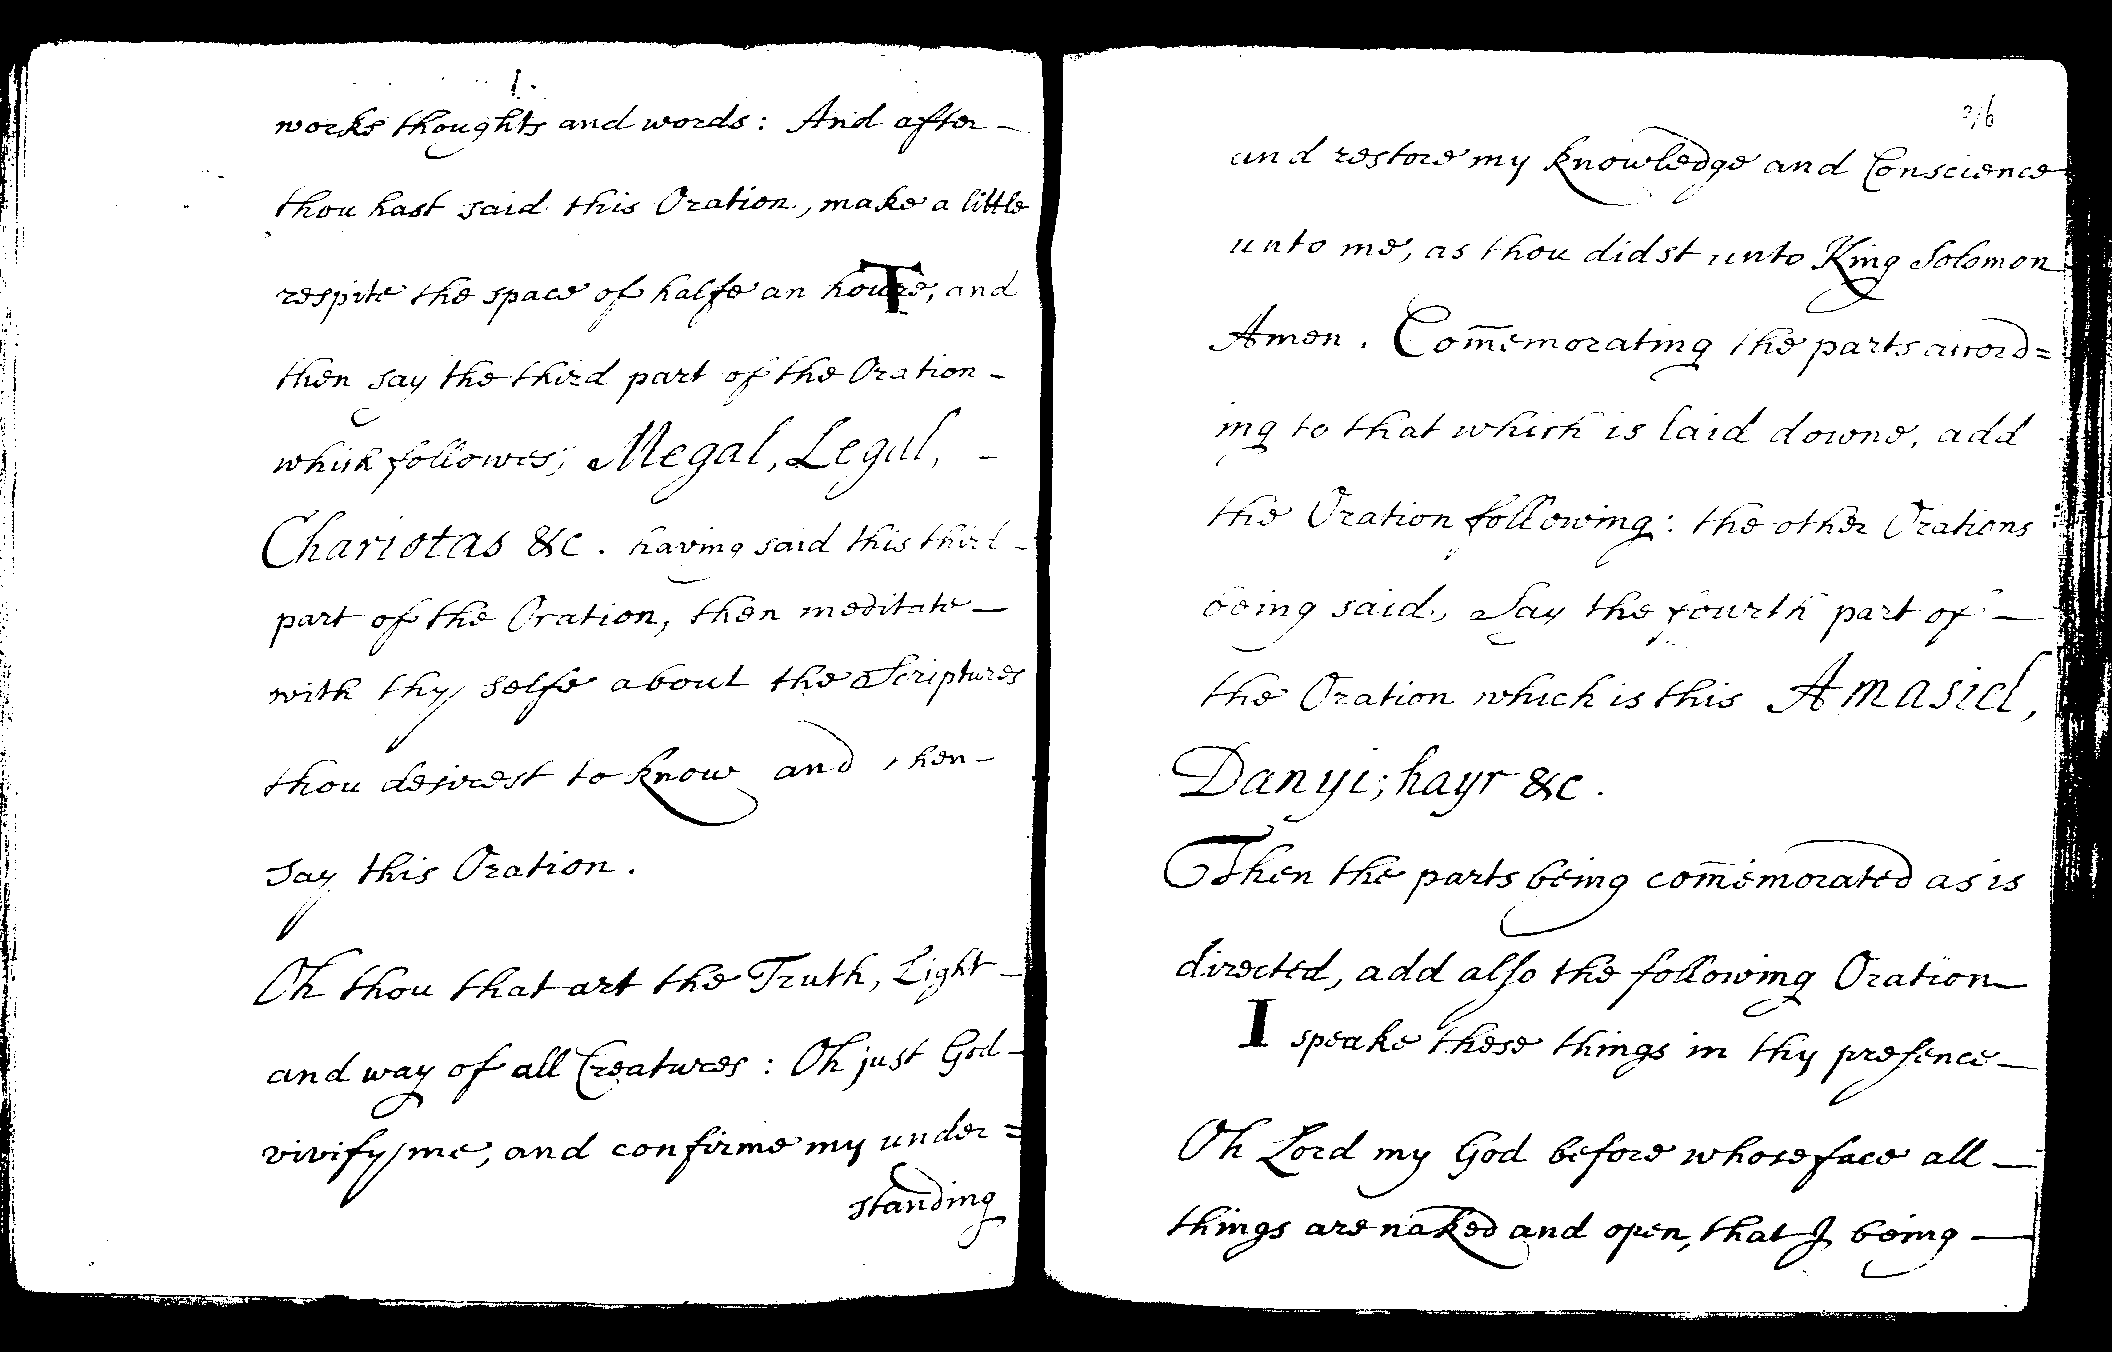 works thoughts and words: And after -
thou hast said this Oration, make a little
respite the space of halfe an houre, and
T
then say the third part of the Oration -
which followes; Megal, Legal, -
Chariotas &c. having said this third -
part of the Oration, then meditate -
with thy selfe about the Scriptures
thou desirest to know and then -
say this Oration.
Oh thou that art the Truth, Light -
and way of all Creatures: Oh just God -
vivify me, and confirme my under=
standing
and restore my knowledge and Conscience
unto me, as thou didst unto King Solomon
Amen. Com̄emorating the parts accord=
ing to that which is laid downe, add
the Oration following: the other Orations
being said, Say the fourth part of -
the Oration which is this Amasiel,
Danyi; hayr &c.
Then the parts being com̄emorated as is
directed, add also the following Oration
I speake these things in thy presence -
Oh Lord my God before whose face all -
things are naked and open, that I being -